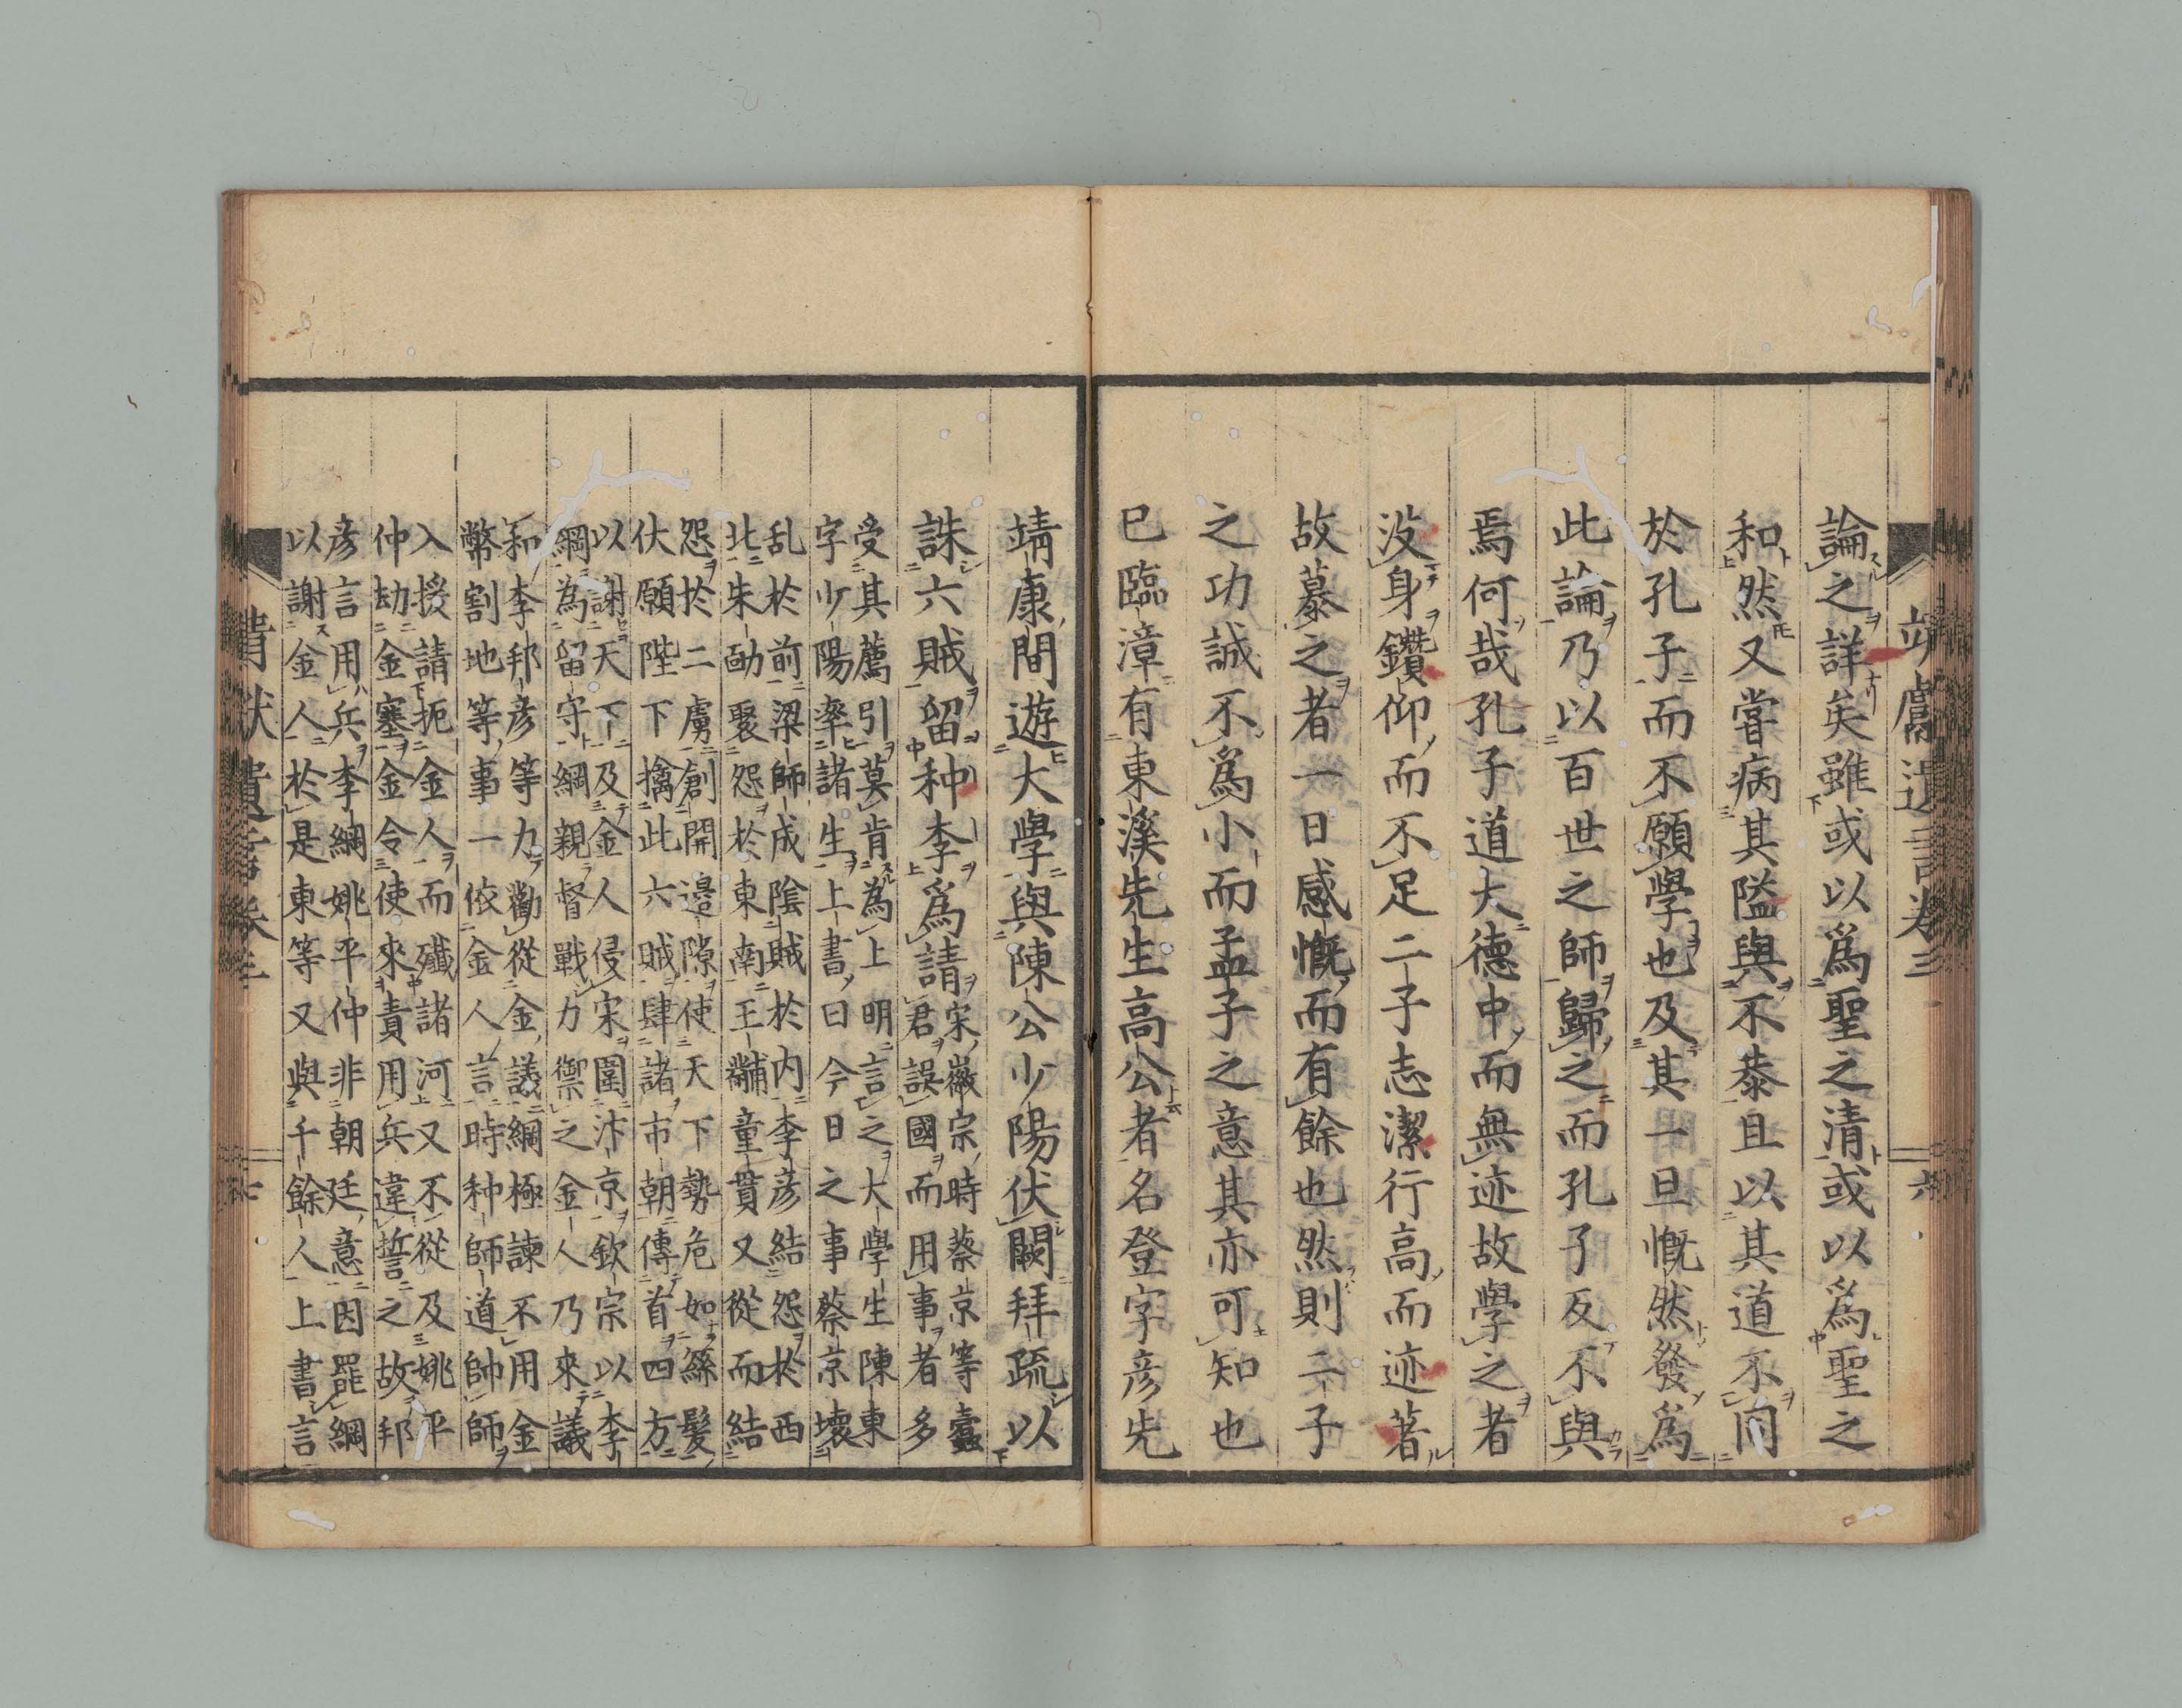 論之詳矣雖或以爲聖之清或以爲聖之
和然又嘗病其隘與不恭且以其道不同
於孔子而不願學也及其一旦慨然發爲
此論乃以百世之師歸之而孔子反不與
焉何哉孔子道大德中而無迹故學之者
沒身鑽仰而不足二子志潔行高而迹著
故慕之者一日感慨而有餘也然則二子
之功誠不爲小而孟子之意其亦可知也
已臨漳有東溪先生高公者名登字彦先
靖康間遊大學與陳公少陽伏闕拜疏以
誅六賊留种李爲請
宋徽宗時蔡京等蠹
君誤國而用事者多
受其薦引莫肯為上明言之大學生陳東
字少陽率諸生上書曰今日之事蔡京壞
乱於前梁師成陰賊於内李彦結怨於西
北朱勔聚怨於東南王黼童貫又從而結
怨於二虜創開邉隙使天下勢危如絲髮
伏願陛下擒此六賊肆諸市朝傳首四方
以謝天下及金人侵宋圍汴京欽宗以李
綱為留守綱親督戰力禦之金人乃來議
和李邦彦等力勸從金議綱極諫不用金
幣割地等事一依金人言時种師道帥師
入援請扼金人而殲諸河又不從及姚平
仲劫金塞金令使來責用兵違誓之故邦
彦言用兵李綱姚平仲非朝廷意因罷綱
以謝金人於是東等又與千餘人上書言